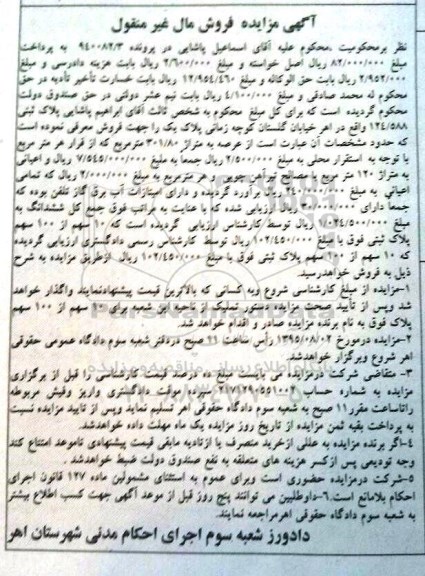 آگهی مزایده فروش مال غیر منقول
نظر برمحکومیت ،محکوم علیه آقای اسماعیل پاشایی در پرونده ۹۴۰۰۸۲/۳ به پرداخت
مبلغ ۸۲/۰۰۰/۰۰۰ ریال اصل خواسته و مبلغ ۲/۶۰۰/۰۰۰ ریال بابت هزینه دادرسی و مبلغ
۲/۹۵۲/۰۰۰ ریال بابت حق الوکاله و مبلغ ۱۲/۹۵۴/۴۶۰ ریال بابت خسارت تأخیر تأدیه در حق
محکوم له محمد صادقی و مبلغ ۴/۱۰۰/۰۰۰ ریال بابت نیم عشر دولتی در حق صندوق دولت
محکوم گردیده است که برای کل مبلغ محکوم به شخص ثالث آقای ابراهیم پاشایی پلاک ثبتی
۱۲۴/۵۸۸ واقع در اهر خیابان گلستان کوچه زمانی پلاک یک را جهت فروش معرفی نموده است
که حدود مشخصات آن عبارت است از عرصه به متراژ ۳۰۱/۸۰ مترمربع که از قرار هر متر مربع
با توجه به استقرار محلی به مبلغ ۲/۵۰۰/۰۰۰ ریال جمعا به مبلغ ۷/۵۴۵/۰۰۰/۰۰۰ ریال و اعیانی
به متراژ ۱۲۰ متر مربع با مصالح تیرآهن چوبی و هر مترمربع به مبلغ ۲/۰۰۰/۰۰۰ ریال که تمامی
اعیانی به مبلغ ۲۴۰/۰۰۰/۰۰۰ ریال برآورد گردیده و دارای امتیازات آب برق گاز تلفن بوده که
جمعا دارای ریال ارزیابی شده که با عنایت به مراتب فوق جمع کل ششدانگ به
مبلغ ریال توسط کارشناس ارزیابی گردیده است که ۱۰ سهم از ۱۰۰ سهم
پلاک ثبتی فوق با مبلغ ۱۰۲/۴۵۰/۰۰۰ ریال توسط کارشناس رسمی دادگستری ارزیابی گردیده
که ۱۰ سهم از ۱۰۰ سهم پلاک ثبتی فوق با مبلغ ۱۰۲/۴۵۰/۰۰۰ ریال ازطریق مزایده به شرح
ذیل به فروش خواهدرسید.
۱-مزایده از مبلغ کارشناسی شروع وبه کسانی که بالاترین قیمت پیشنهادنمایند واگذار خواهد
شد وپس از تأیید صحت مزایده دستور تملیک از ناحیه این شعبه برای ۱۰ سهم از ۱۰۰ سهم
پلاک فوق به نام برنده مزایده صادر و اقدام خواهد شد.
۲-مزایده درمورخ ۱۳۹۵/۰۸/۰۲ رأس ساعت ۱۱ صبح دردفتر شعبه سوم دادگاه عمومی حقوقی
اهر شروع وبرگزار خواهدشد.
۳- متقاضی شرکت درمزایده می بایست مبلغ ده درصد قیمت کارشناسی را قبل از برگزاری
مزایده به شماره حساب ۲۱۷۱۲۹۰۵۵۱۰۰۲ سپرده موقت دادگستری واریز وفیش مربوطه
راتاساعت مقرر ۱۱ صبح به شعبه سوم دادگاه حقوقی اهر تسلیم نماید وپس از تایید مزایده نسبت
به پرداخت بقیه ثمن مزایده از تاریخ روز مزایده یک ماه مهلت داده خواهدشد.
۴-اگر برنده مزایده به عللی ازخرید منصرف یا ازتادیه مابقی قیمت پیشنهادی تاموعد امتناع کند
وجه تودیعی پس ازکسر هزینه های متعلقه به نفع صندوق دولت ضبط خواهدشد.
۵-شرکت درمزایده حضوری است وبرای عموم به استثنای مشمولین ماده ۱۲۷ قانون اجرای
احکام بلامانع است.۶-داوطلبین می توانند پنج روز قبل از موعد آگهی جهت کسب اطلاع بیشتر
به شعبه سوم دادگاه حقوقی اهرمراجعه نمایند.
دادورز شعبه سوم اجرای احکام مدنی شهرستان اهر